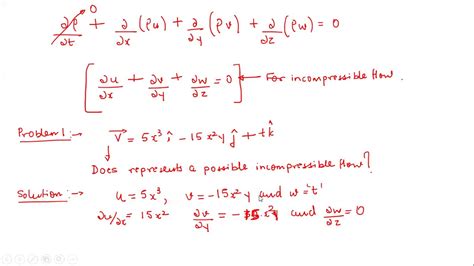 ∂ρ/∂t + ∂/∂x (ρu) + ∂/∂y (ρv) + ∂/∂z (ρw) = 0
0
[∂u/∂x + ∂v/∂y + ∂w/∂z = 0] ← For incompressible flow.
Problem 1:→ V⃗ = 5x³ î - 15x²y ĵ + t k̂
Does represents a possible incompressible flow?
Solution:→ u = 5x³, v = -15x²y and w = 't'
∂u/∂x = 15x² ∂v/∂y = -15x² and ∂w/∂z = 0